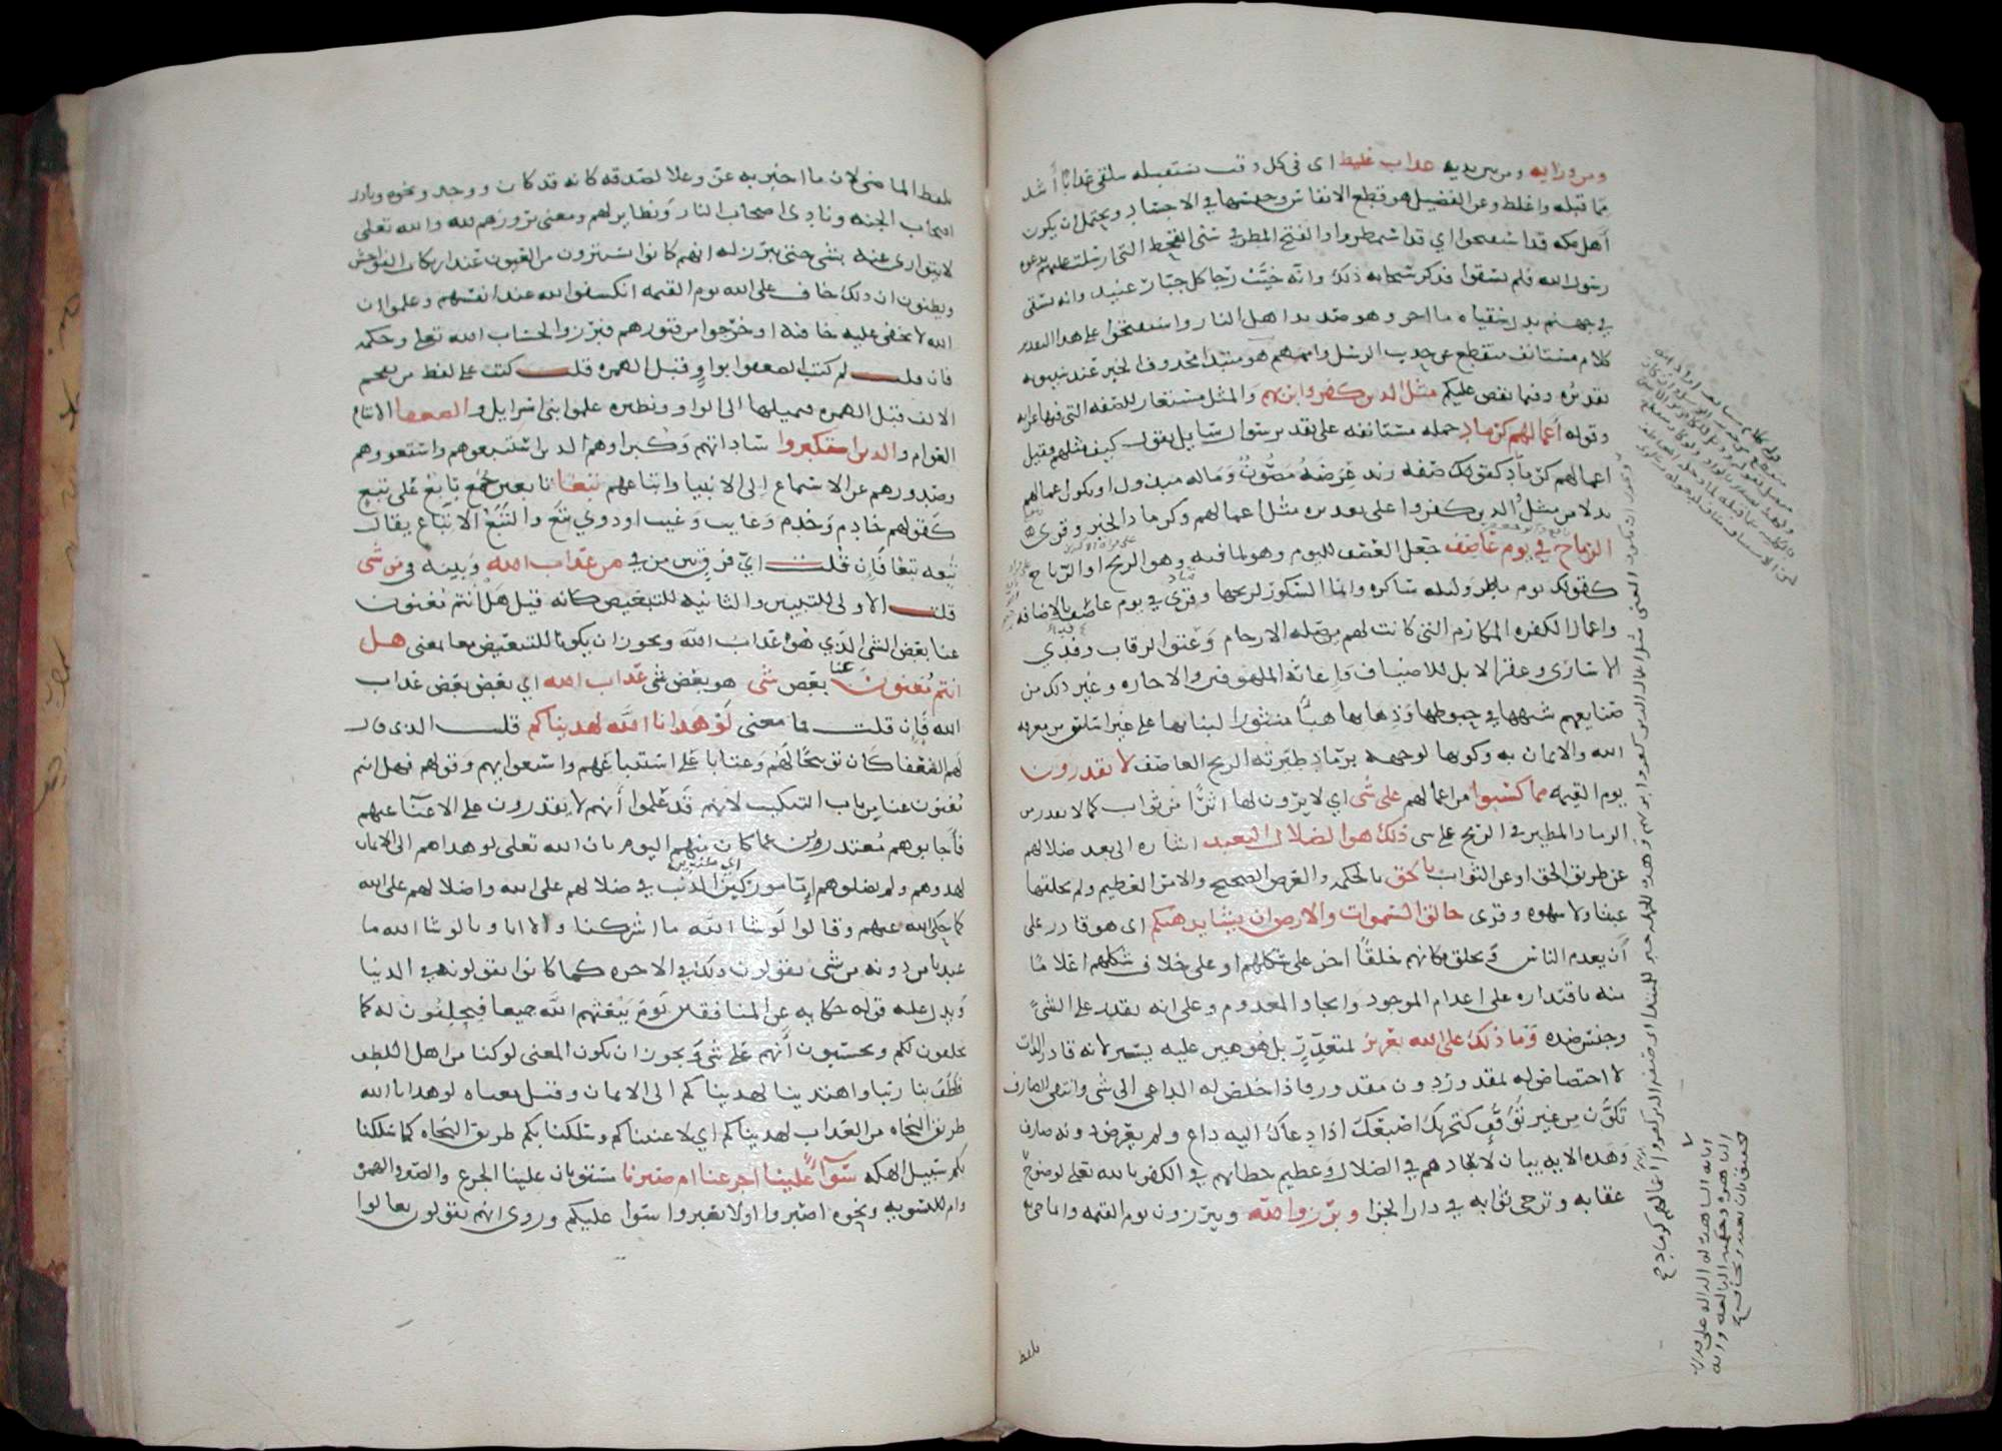 ومن ورايه ومن بين يديه عذاب غليظ اى فى كل وقت يستقبله يلقى عذابا أشد
مما قبله واغلظ وعن الفضيل هو قطع الانفاس وحبسها في الاجساد ويحتمل ان يكون
أهل مكه قد استفتحوا اي قد استمطروا والفتح المطر في سنى القحط التى ارسلت عليهم بدعوه
رسول الله فلم يسقوا فذكر سبحانه ذلك وانه خيب رجا كل جبار عنيد وانه يسقى
في جهنم بدل سقياه ما اخر وهو صديد اهل النار واستفتحوا على هذا التقدير
كلام مستانف منقطع عن حديث الرسل واممهم هو مبتدا محذوف الخبر عند سيبويه
تقديره وفيما يقص عليكم مثل الذين كفروا بربهم والمثل مستعار للصفه التى فيها غرابه
وقوله أعمالهم كرماد جمله مستانفه على تقدير سوال سايل يقول كيف مثلهم فقيل
اعمالهم كرماد كقولك صفه زيد عرضه مصون وماله مبذول او يكون اعمالهم
بدلا من مثل الذين كفروا على تقدير مثل اعمالهم وكرماد الخبر وقرى
الرياح في يوم عاصف جعل العصف لليوم وهو لما فيه وهو الريح او الرياح
كقولك يوم ماطر وليله ساكره وانما السكور لريحها وقرى في يوم عاصف بالاضافه
واعمال الكفره المكارم التى كانت لهم من صله الارحام وعتق الرقاب وفدي
الاسارى وعقر الابل للاضياف واغاثه الملهوفين والاجاره وغير ذلك من
صنايعهم شبهها في حبوطها وذهابها هبا منثورا لبنايها على غير اساس من معرفه
الله والايمان به وكونها لوجهه برماد طيرته الريح العاصف لا يقدرون
يوم القيمه مما كسبوا من اعمالهم على شى اي لا يرون لها اثرا من ثواب كما لا يقدر من
الرماد المطير في الريح على شى ذلك هو الضلال البعيد اشاره الى بعد ضلالهم
عن طريق الحق او عن الثواب بالحق بالحكمه والغرض الصحيح والامر العظيم ولم يخلقها
عبثا ولا شهوه وقرى خالق السموات والارض ان يشا يذهبكم اى هو قادر على
أن يعدم الناس ويخلق مكانهم خلقا اخر على شكلهم او على خلاف شكلهم اعلاما
منه باقتداره على اعدام الموجود وايجاد المعدوم وعلى انه يقدر على الشى
وجنس ضده وما ذلك على الله بعزيز لمتعذر بل هو هين عليه يسير لانه قادر الذات
لا اختصاص له بمقدور دون مقدور فاذا خلص له الداعى الى شى وانتفى الصارف
تكون من غير توقف كتحريك اصبعك اذا دعاك اليه داع ولم يعترض دونه صارف
وهذه الايه بيان لابعادهم في الضلال وعظيم خطايهم في الكفر بالله تعلى لوضوح
عقابه وترجى ثوابه في دار الجزا وبرزوا لله ويبرزون يوم القيمه وانما جى به
بلفظ
بلفظ الماضى لان ما اخبر به عز وعلا لصدقه كانه قد كان ووجد ونحوه ونادى
اصحاب الجنه ونادى اصحاب النار ونظاير لهم ومعنى بروزهم لله والله تعلى
لا يتوارى عنه بشى حتى يبرز له انهم كانوا يستترون من العيون عند ارتكاب الفواحش
ويظنون ان ذلك خاف على الله يوم القيمه انكشفوا لله عند انفسهم وعلموا ان
الله لا تخفى عليه خافيه او خرجوا من قبورهم فبرزوا لحساب الله تعلى وحكمه
فان قلت لم كتب الضعفوا بواو قبل الهمزه قلت كتب على لفظ من يفخم
الالف قبل الهمزه فيميلها الى الواو ونظيره علموا بنى اسرايل والضعفا الاتباع
العوام والذين استكبروا ساداتهم وكبراوهم الذين استتبعوهم واستغووهم
وصدوهم عن الاستماع الى الانبيا واتباعهم تبعا تابعين جمع تابع على تبع
كقولهم خادم وخدم وغايب وغيب او ذوي تبع والتبع الاتباع يقال
تبعه تبعا فإن قلت اي فرق بين من في من عذاب الله وبينه في من شى
قلت الاولى للتبيين والثانيه للتبعيض كانه قيل هل أنتم مغنون
عنا بعض الشى الذي هو عذاب الله ويجوز ان يكونا للتبعيض معا بمعنى هل
انتم مغنون عنا بعض شى هو بعض شى عذاب الله اي بعض بعض عذاب
الله فإن قلت فما معنى لو هدانا الله لهديناكم قلت الذى قال
لهم الضعفا كان توبيخا لهم وعتابا على استتباعهم واستغوايهم وقولهم فهل انتم
مغنون عنا من باب التبكيت لانهم قد علموا أنهم لا يقدرون على الاغنا عنهم
فأجابوهم معتذرين عما كان منهم اليهم بان الله تعلى لو هداهم الى الايمان
لهدوهم ولم يضلوهم إما موركين الذنب في ضلالهم على الله واضلالهم على الله
كما حكى الله عنهم وقالوا لو شا الله ما اشركنا ولا اباونا لو شا الله ما
عبدنا من دونه من شى يقولون ذلك في الاخره كما كانوا يقولونه في الدنيا
ويدل عليه قوله حكايه عن المنافقين يوم يبعثهم الله جميعا فيحلفون له كما
يحلفون لكم ويحسبون أنهم على شى ويجوز ان يكون المعنى لو كنا من اهل اللطف
فلطف بنا ربنا واهتدينا لهديناكم الى الايمان وقيل معناه لو هدانا الله
طريق النجاه من العذاب لهديناكم اي لاغنيناكم وسلكنا بكم طريق النجاه كما سلكنا
بكم سبيل الهلكه سوآ علينا اجزعنا ام صبرنا مستويان علينا الجزع والصبر والهمزه
وام للتسويه ونحوه اصبروا او لا تصبروا سوا عليكم وروى انهم يقولون تعالوا